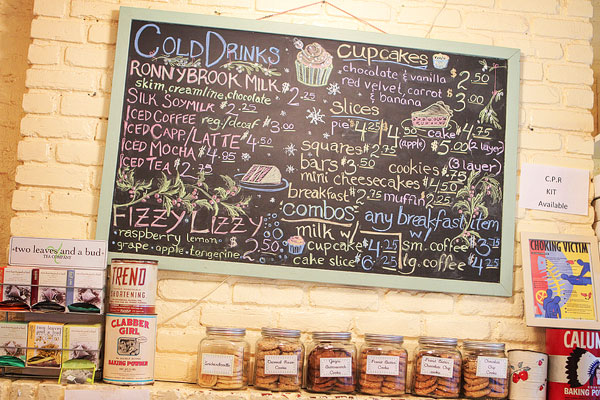 COLD DRINKS
RONNYBROOK MILK
skim, creamline, chocolate
2.25
SILK SOYMILK $2.25
ICED COFFEE reg./decaf $3.00
ICED CAPP/LATTE $4.50
ICED MOCHA $4.95
ICED TEA $2.75
FIZZY LIZZY
raspberry lemon
grape·apple·tangerine
$2.50
CUPCAKES
chocolate & vanilla $2.50
red velvet, carrot $3.00
& banana
slices
pie $4.25 $4.50 cake $4.75
(apple) $5.00 (2 layer)
(3 layer)
squares $2.75
bars $3.50 cookies $.75
mini cheesecakes $4.50
breakfast $2.75 muffin $2.25
combos any breakfast item
milk w/ w/
cupcake $4.25 sm. coffee $3.75
cake slice $6.25 lg. coffee $4.25
C.P.R
KIT
Available
CHOKING VICTIM
two leaves and a bud
TEA COMPANY
TREND
SHORTENING
CLABBER
GIRL
BAKING POWDER
Snickerdoodle
Oatmeal Raisin
Cookie
Ginger
Buttersnap
Cookie
Peanut Butter
Cookie
Peanut Butter
Chocolate Chip
Cookie
Chocolate Chip
Cookie
CALUM
BAKING PO